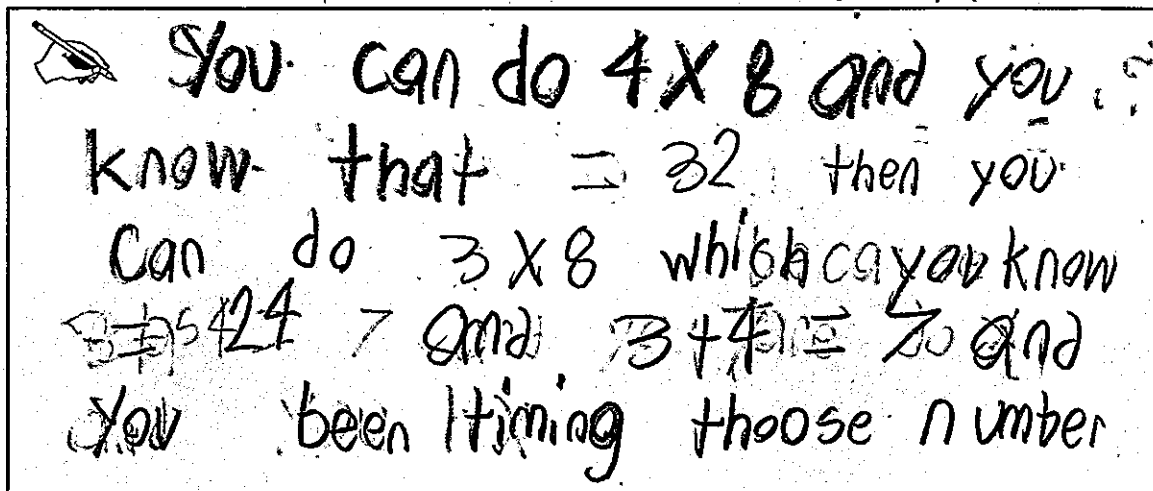 You can do 4 X 8 and you
know that = 32 then you
can do 3 X 8 which you know
= 24 and 3+4 = 7 and
you been timing thoose number